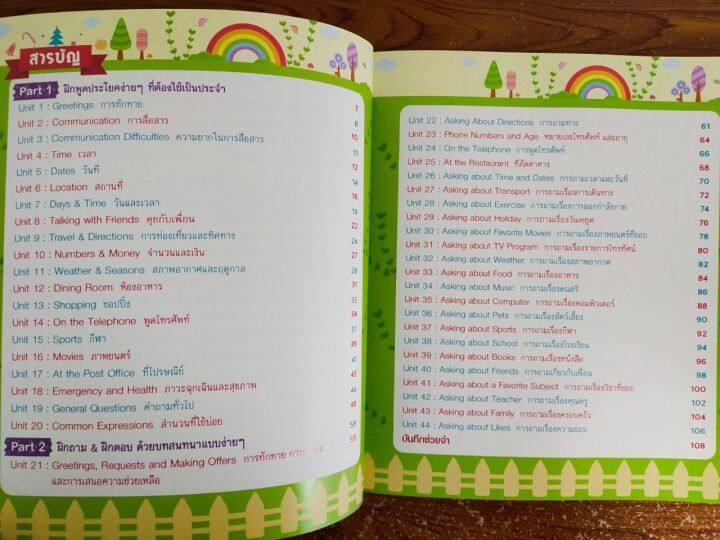 สารบัญ
Part 1 ฝึกพูดประโยคง่ายๆ ที่ต้องใช้เป็นประจำ
Unit 1 : Greetings การทักทาย 7
Unit 2 : Communication การสื่อสาร 8
Unit 3 : Communication Difficulties ความยากในการสื่อสาร 10
Unit 4 : Time เวลา 11
Unit 5 : Dates วันที่ 12
Unit 6 : Location สถานที่ 14
Unit 7 : Days & Time วันและเวลา 16
Unit 8 : Talking with Friends คุยกับเพื่อน 19
Unit 9 : Travel & Directions การท่องเที่ยวและทิศทาง 22
Unit 10 : Numbers & Money จำนวนและเงิน 24
Unit 11 : Weather & Seasons สภาพอากาศและฤดูกาล 27
Unit 12 : Dining Room ห้องอาหาร 28
Unit 13 : Shopping ชอปปิ้ง 31
Unit 14 : On the Telephone พูดโทรศัพท์ 34
Unit 15 : Sports กีฬา 37
Unit 16 : Movies ภาพยนตร์ 39
Unit 17 : At the Post Office ที่ไปรษณีย์ 41
Unit 18 : Emergency and Health ภาวะฉุกเฉินและสุขภาพ 43
Unit 19 : General Questions คำถามทั่วไป 44
Unit 20 : Common Expressions สำนวนที่ใช้บ่อย
58
Part 2 ฝึกถาม & ฝึกตอบ ด้วยบทสนทนาแบบง่ายๆ
59
Unit 21 : Greetings, Requests and Making Offers การทักทาย
และการเสนอความช่วยเหลือ
Unit 22 : Asking About Directions การถามทาง 61
Unit 23 : Phone Numbers and Age หมายเลขโทรศัพท์ และอายุ 64
Unit 24 : On the Telephone การพูดโทรศัพท์ 66
Unit 25 : At the Restaurant ที่ภัตตาคาร 68
Unit 26 : Asking about Time and Dates การถามเวลาและวันที่ 70
Unit 27 : Asking about Transport การถามเรื่องการเดินทาง 72
Unit 28 : Asking about Exercise การถามเรื่องการออกกำลังกาย 74
Unit 29 : Asking about Holiday การถามเรื่องวันหยุด 76
Unit 30 : Asking about Favorite Movies การถามเรื่องภาพยนตร์ที่ชอบ 78
Unit 31 : Asking about TV Program การถามเรื่องรายการโทรทัศน์ 80
Unit 32 : Asking about Weather การถามเรื่องสภาพอากาศ 82
Unit 33 : Asking about Food การถามเรื่องอาหาร 84
Unit 34 : Asking about Music การถามเรื่องดนตรี 86
Unit 35 : Asking about Computer การถามเรื่องคอมพิวเตอร์ 88
Unit 36 : Asking about Pets การถามเรื่องสัตว์เลี้ยง 90
Unit 37 : Asking about Sports การถามเรื่องกีฬา 92
Unit 38 : Asking about School การถามเรื่องโรงเรียน 94
Unit 39 : Asking about Books การถามเรื่องหนังสือ 96
Unit 40 : Asking about Friends การถามเกี่ยวกับเพื่อน 98
Unit 41 : Asking about a Favorite Subject การถามเรื่องวิชาที่ชอบ 100
Unit 42 : Asking about Teacher การถามเรื่องคุณครู 102
Unit 43 : Asking about Family การถามเรื่องครอบครัว 104
Unit 44 : Asking about Likes การถามเรื่องความชอบ 106
บันทึกช่วยจำ 108